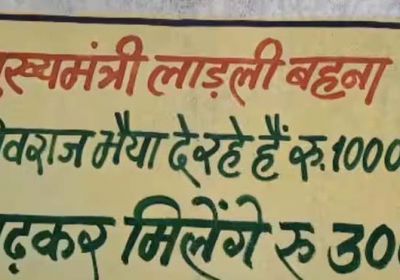 मुख्यमंत्री लाड़ली बहना
शिवराज भैया दे रहे हैं रु.1000
बढ़कर मिलेंगे रु 300